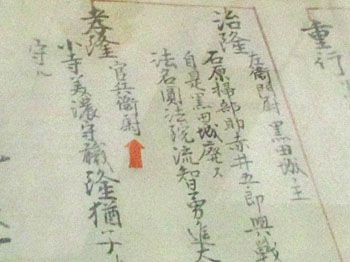 重行
左衛門尉 黒田城主
治隆
石原掃部助赤井五郎興戦
自是黒田城廃ス
法名圓法院流智勇進大
孝隆
官兵衛尉
小寺美濃守職隆猶子
守ニ